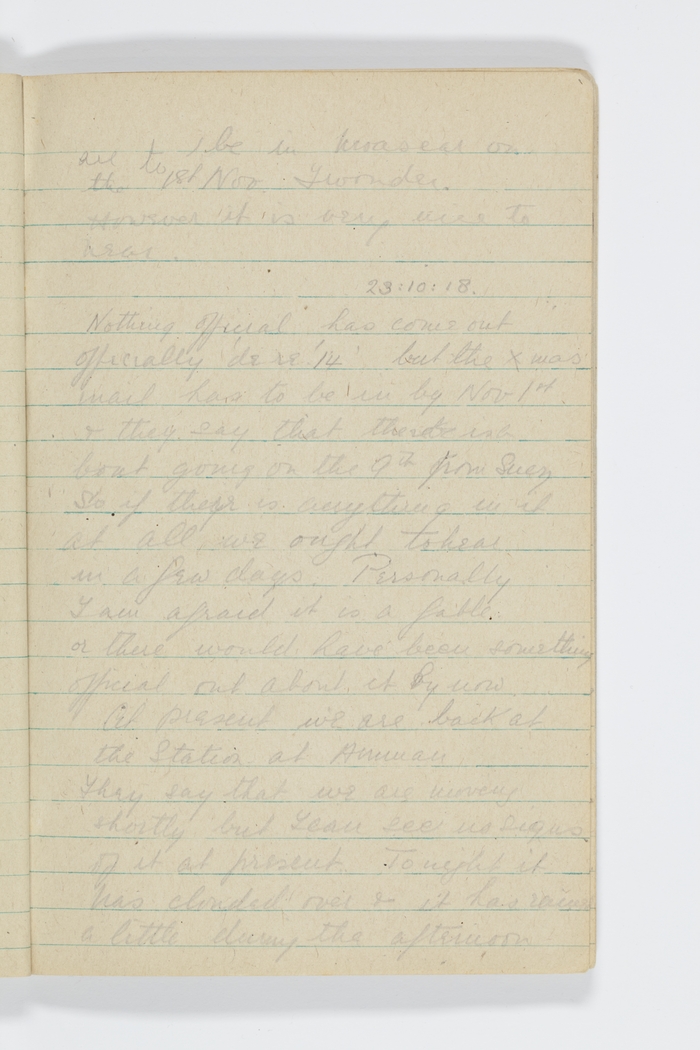 are to be in Moascar on
the 18th Nov. I wonder.
However it is very nice to
hear.
23:10:18.
Nothing official has come out
officially de re '14 but the Xmas
mail has to be in by Nov 1st.
& they say that there is a
boat going on the 9th from Suez
So if there is anything in it
at all we ought to hear
in a few days. Personally
I am afraid it is a fable
or there would have been something
official out about it by now
At present we are back at
the Station at Amman
They say that we are moving
shortly but I can see no signs
of it at present. Tonight it
has clouded over & it has rained
a little during the afternoon